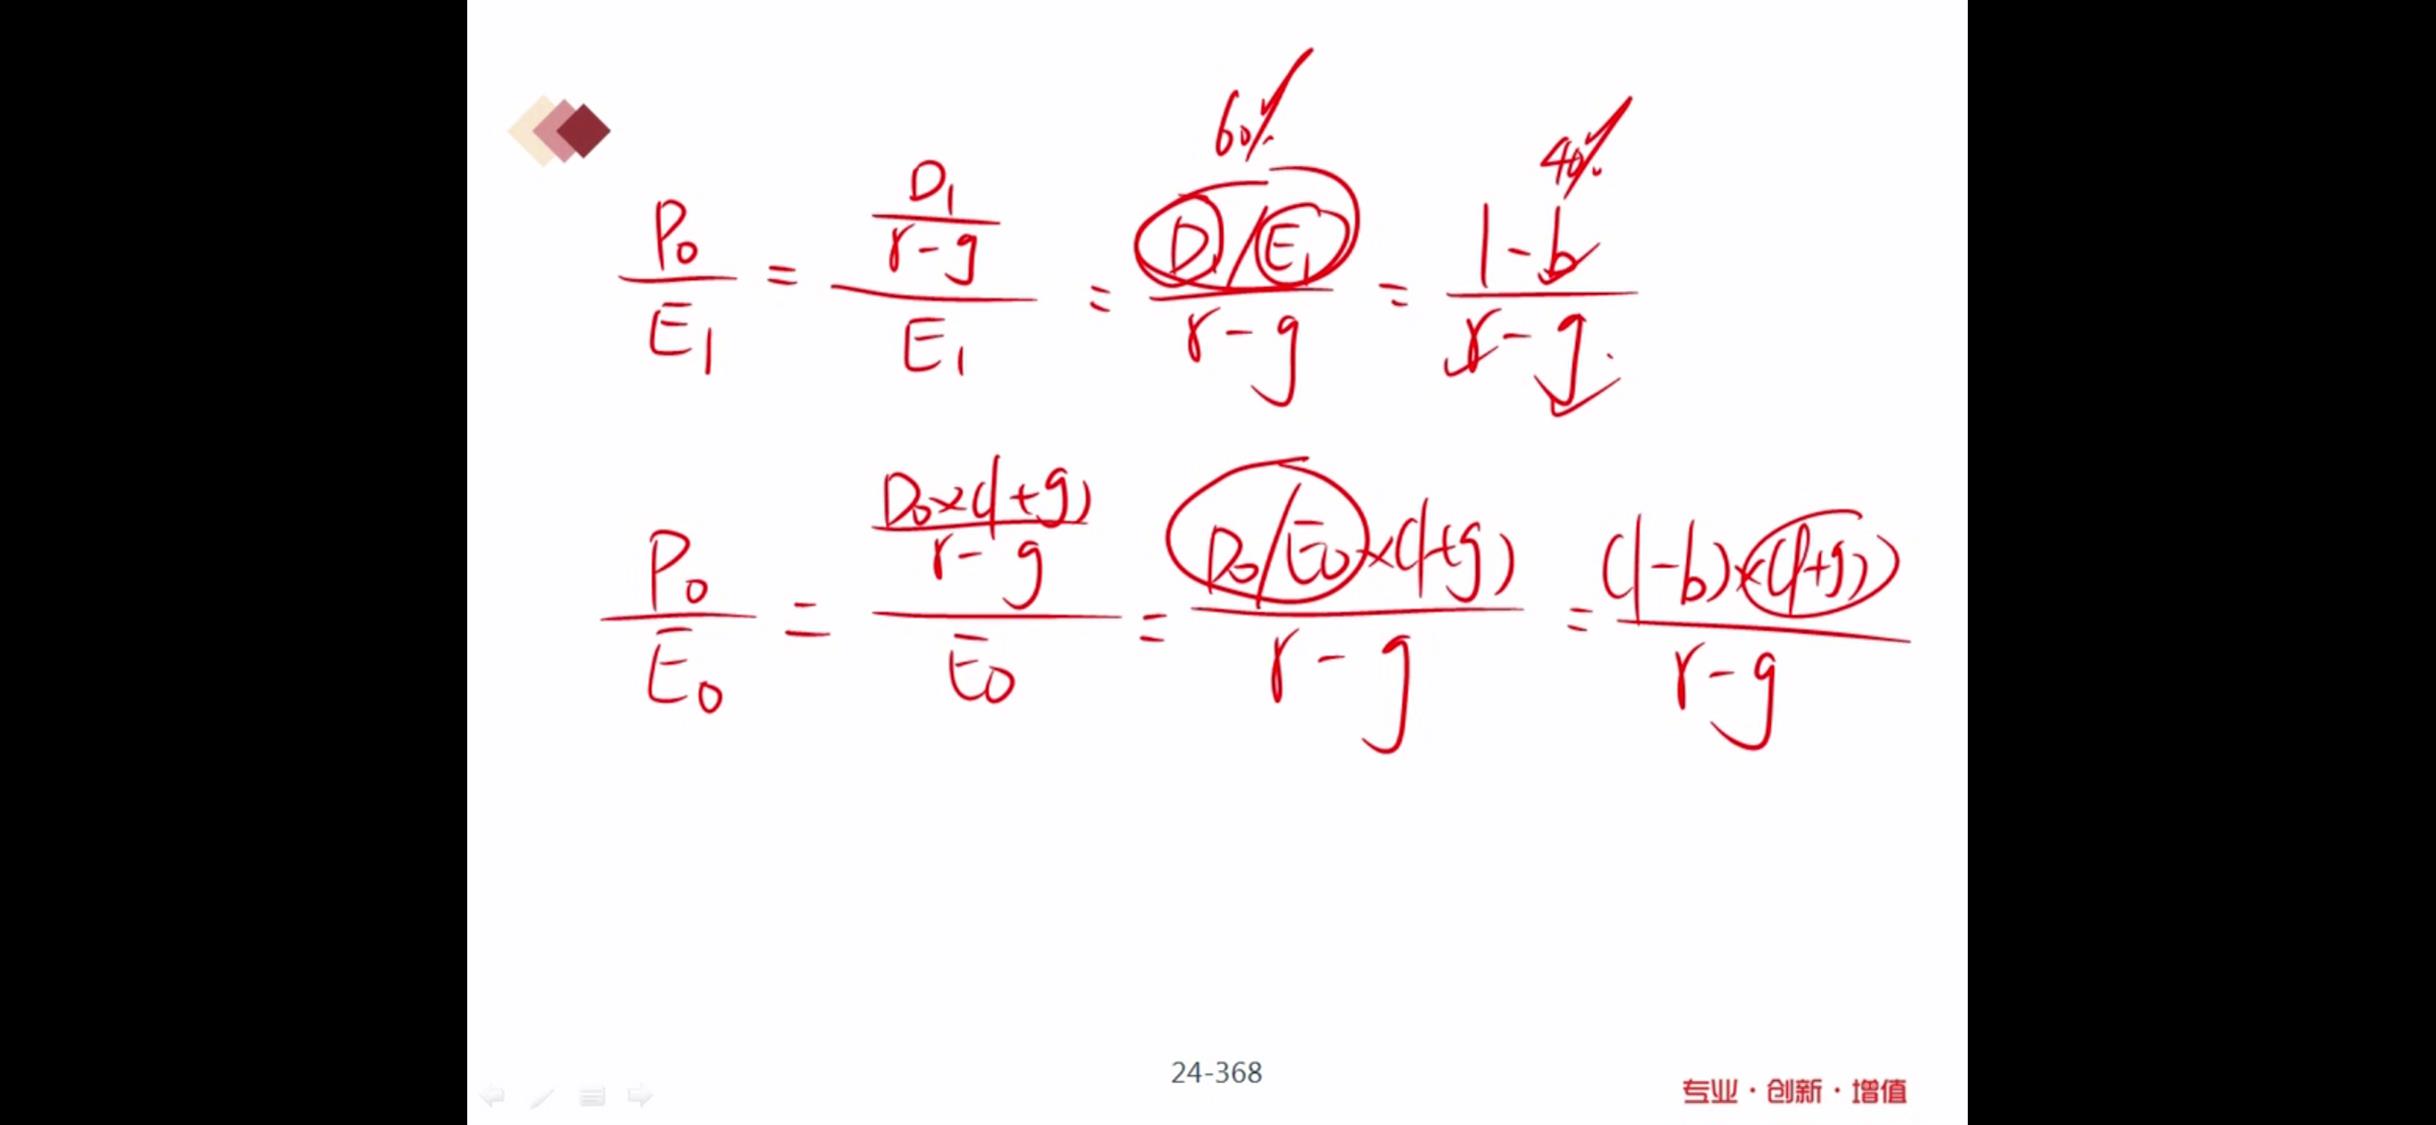 60% 40%
P₀/E₁ = (D₁/(r-g))/E₁ = (D₁/E₁)/(r-g) = (1-b)/(r-g)
P₀/E₀ = (D₀×(1+g)/(r-g))/E₀ = (D₀/E₀×(1+g))/(r-g) = ((1-b)×(1+g))/(r-g)
24-368
专业·创新·增值